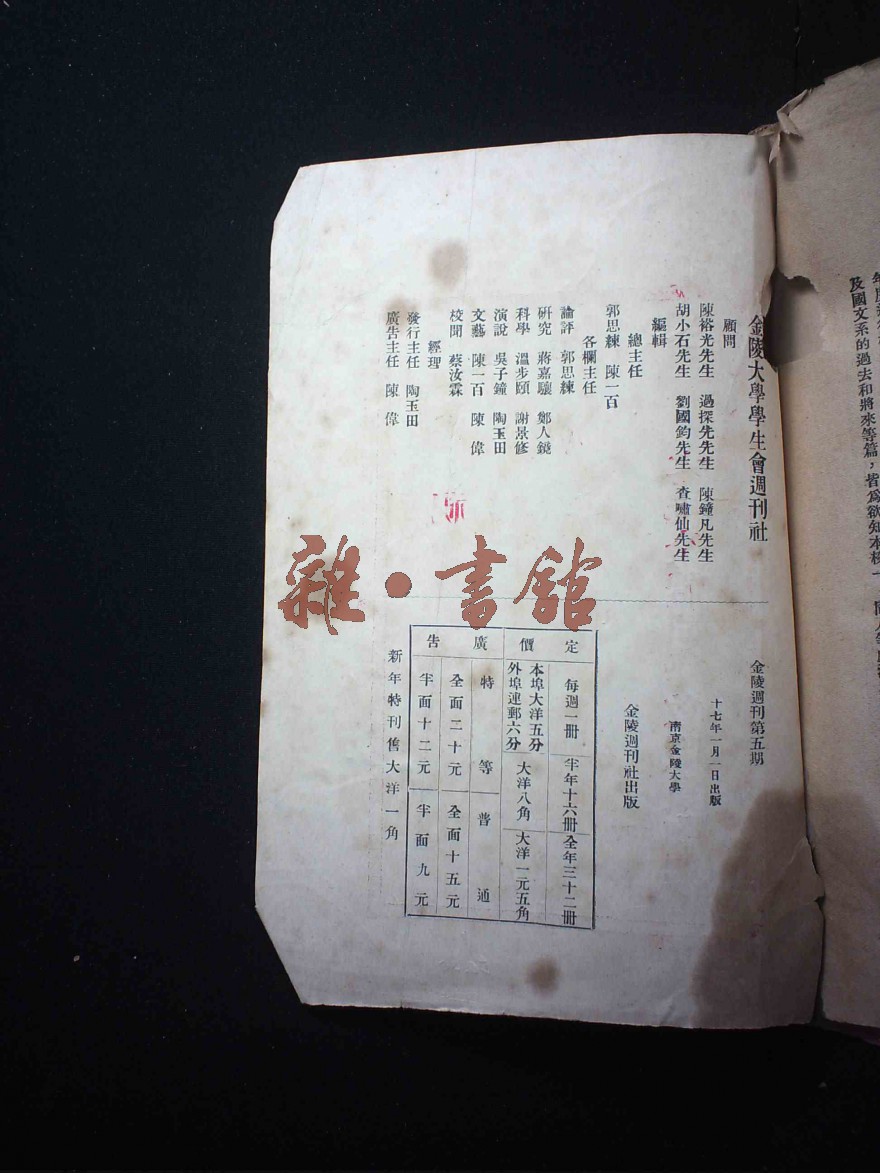 金陵大學學生會週刊社
顧問
陳裕光先生 過探先先生 陳鐘凡先生
胡小石先生 劉國鈞先生 查嘯仙先生
編輯
總主任
郭思練 陳一百
各欄主任
論評 郭思練
研究 蔣嘉驤 鄭人鏡
科學 溫步頤 謝景修
演說 吳子鐘 陶玉田
文藝 陳一百 陳偉
校聞 蔡汝霖
經理
發行主任 陶玉田
廣告主任 陳偉
金陵週刊第五期
十七年一月一日出版
南京金陵大學
金陵週刊社出版
定價
每週一冊 半年十六冊 全年三十二冊
本埠大洋五分
外埠連郵六分
大洋八角 大洋一元五角
廣告
特等 普通
全面二十元 全面十五元
半面十二元 半面九元
新年特刊售大洋一角
及國文系的過去和將來等篇，皆爲欲知本校
雜·書館